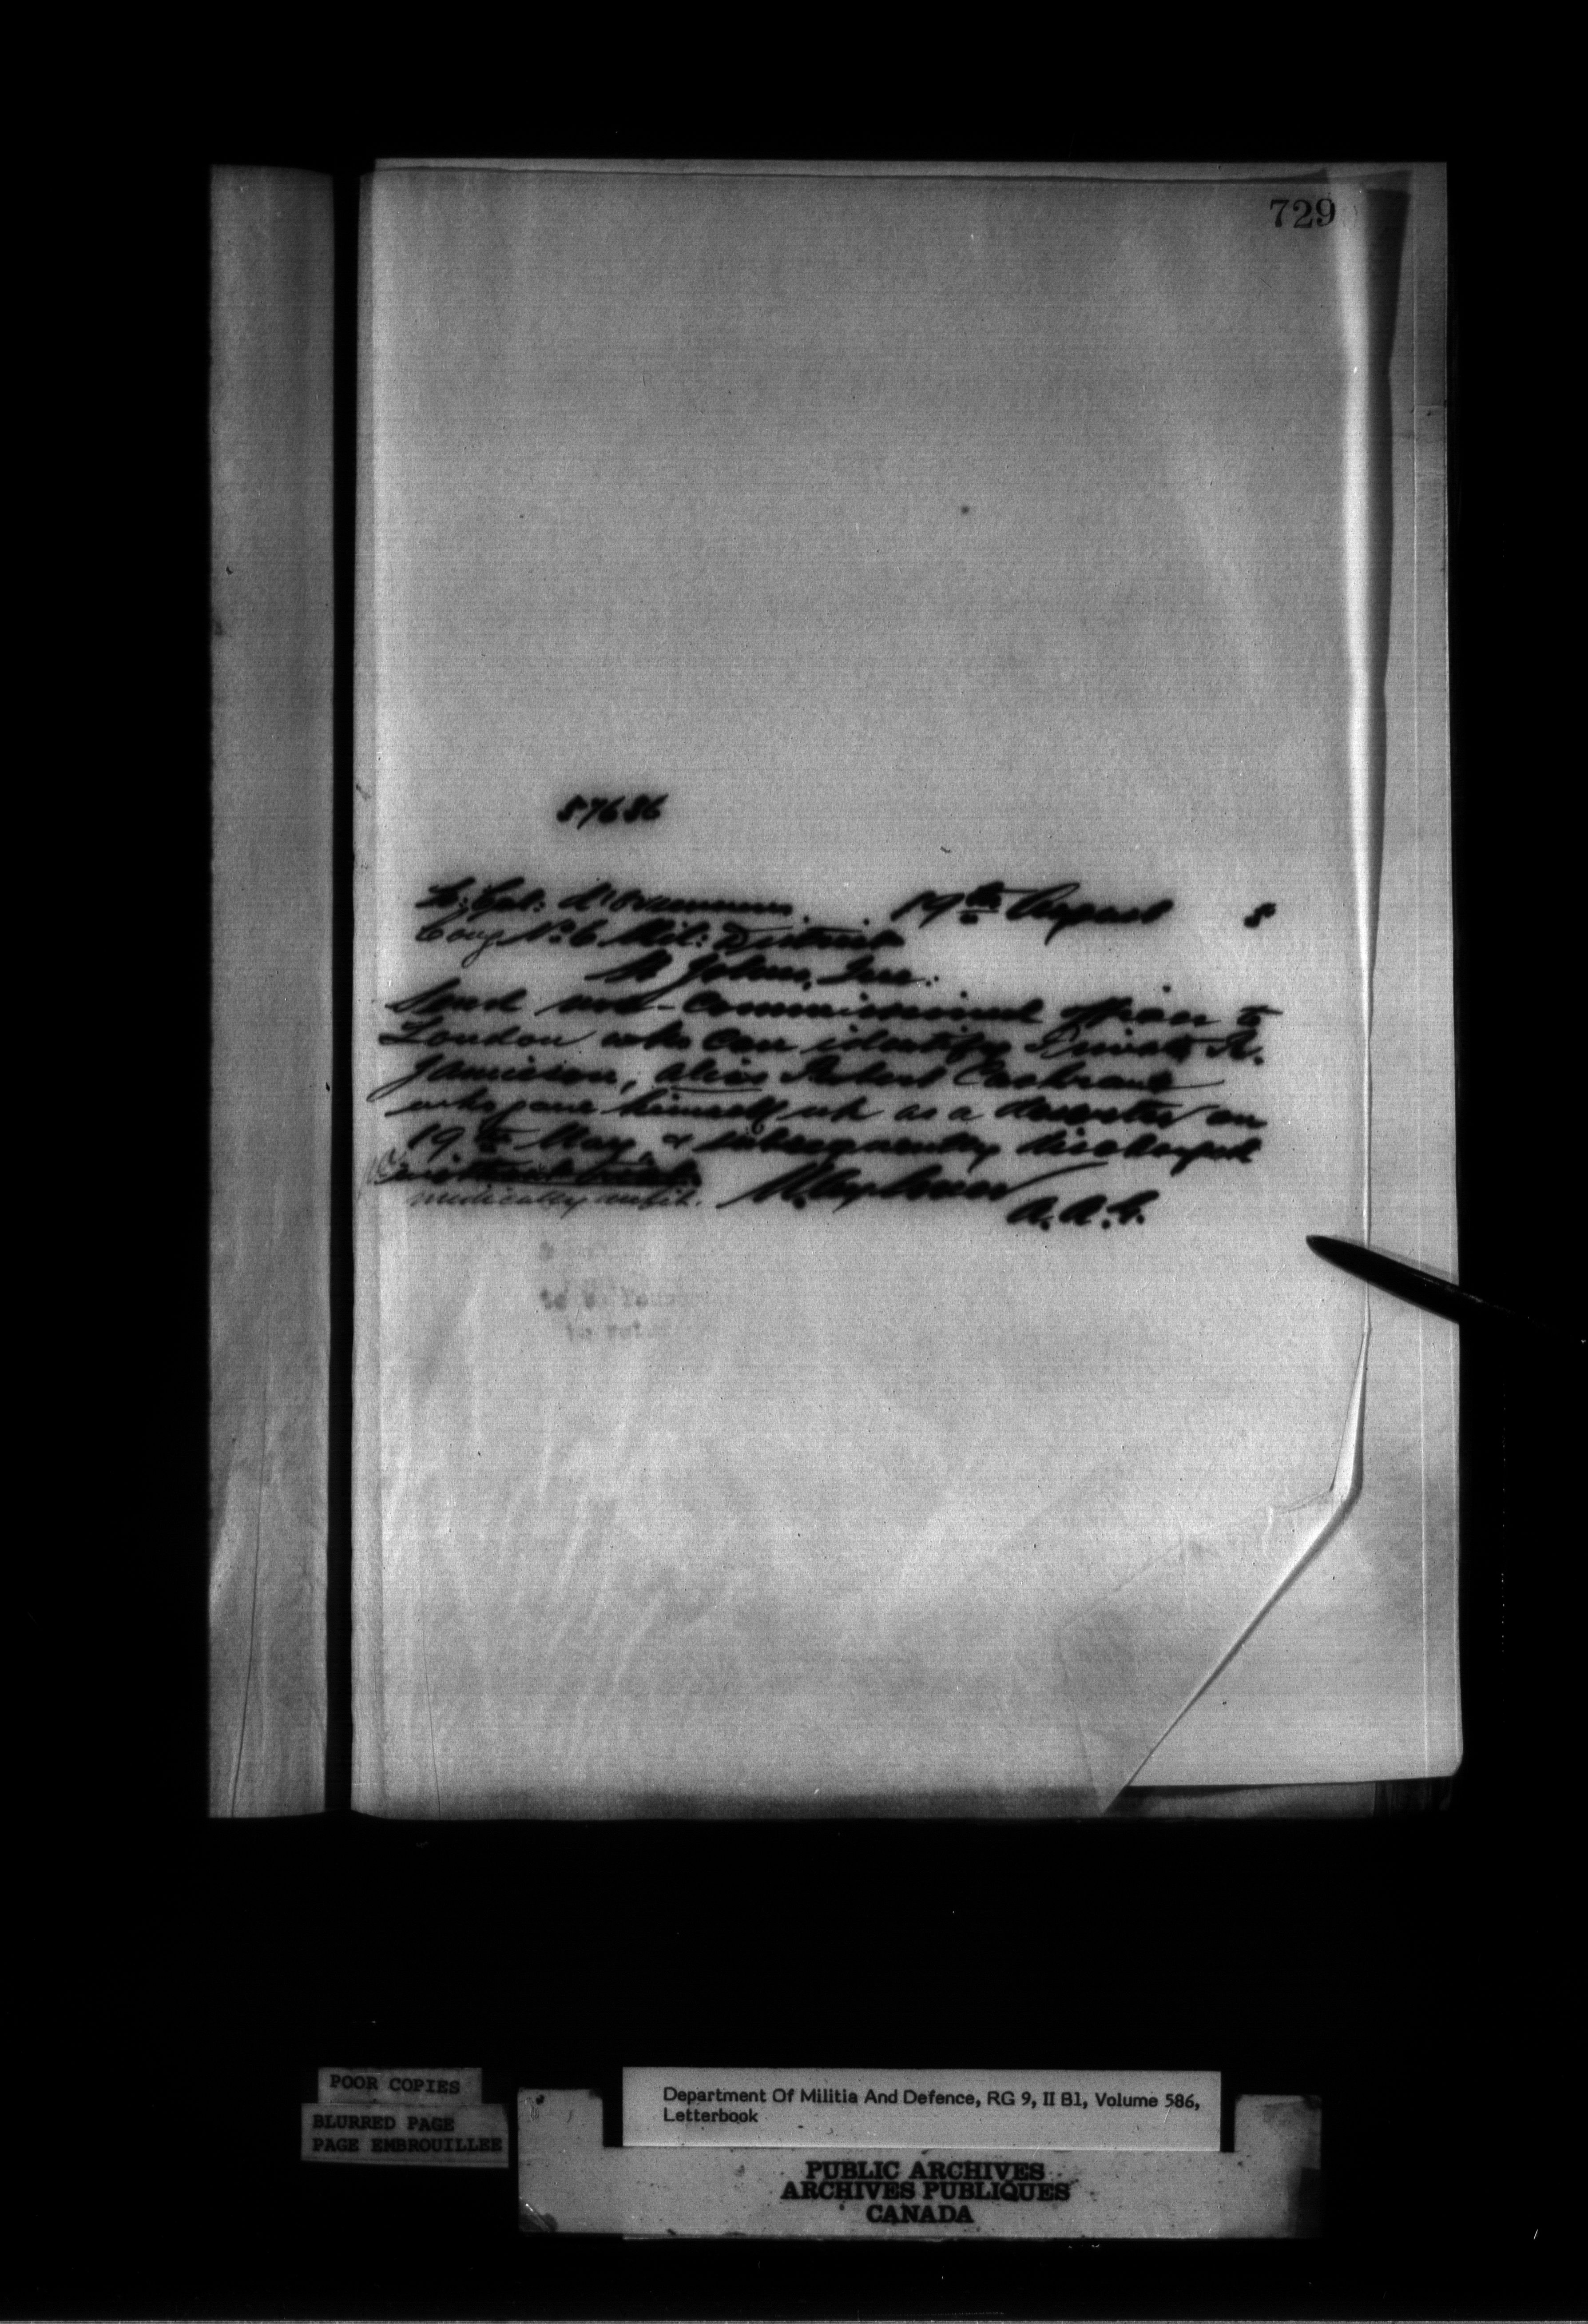 729
57686
Lt: Col: d'Orsonnens 19th August 8
Comg No. 6 Mil: District
St Johns, Que:
Send non-commissioned officer to
London who can identify Private R.
Jamieson, alias Robert Cochrane
who gave himself up as a deserter on
19th May, & subsequently discharged
medically unfit.
A.A.G.
POOR COPIES
BLURRED PAGE
PAGE EMBROUILLEE
Department Of Militia And Defence, RG 9, II B1, Volume 586,
Letterbook
PUBLIC ARCHIVES
ARCHIVES PUBLIQUES
CANADA